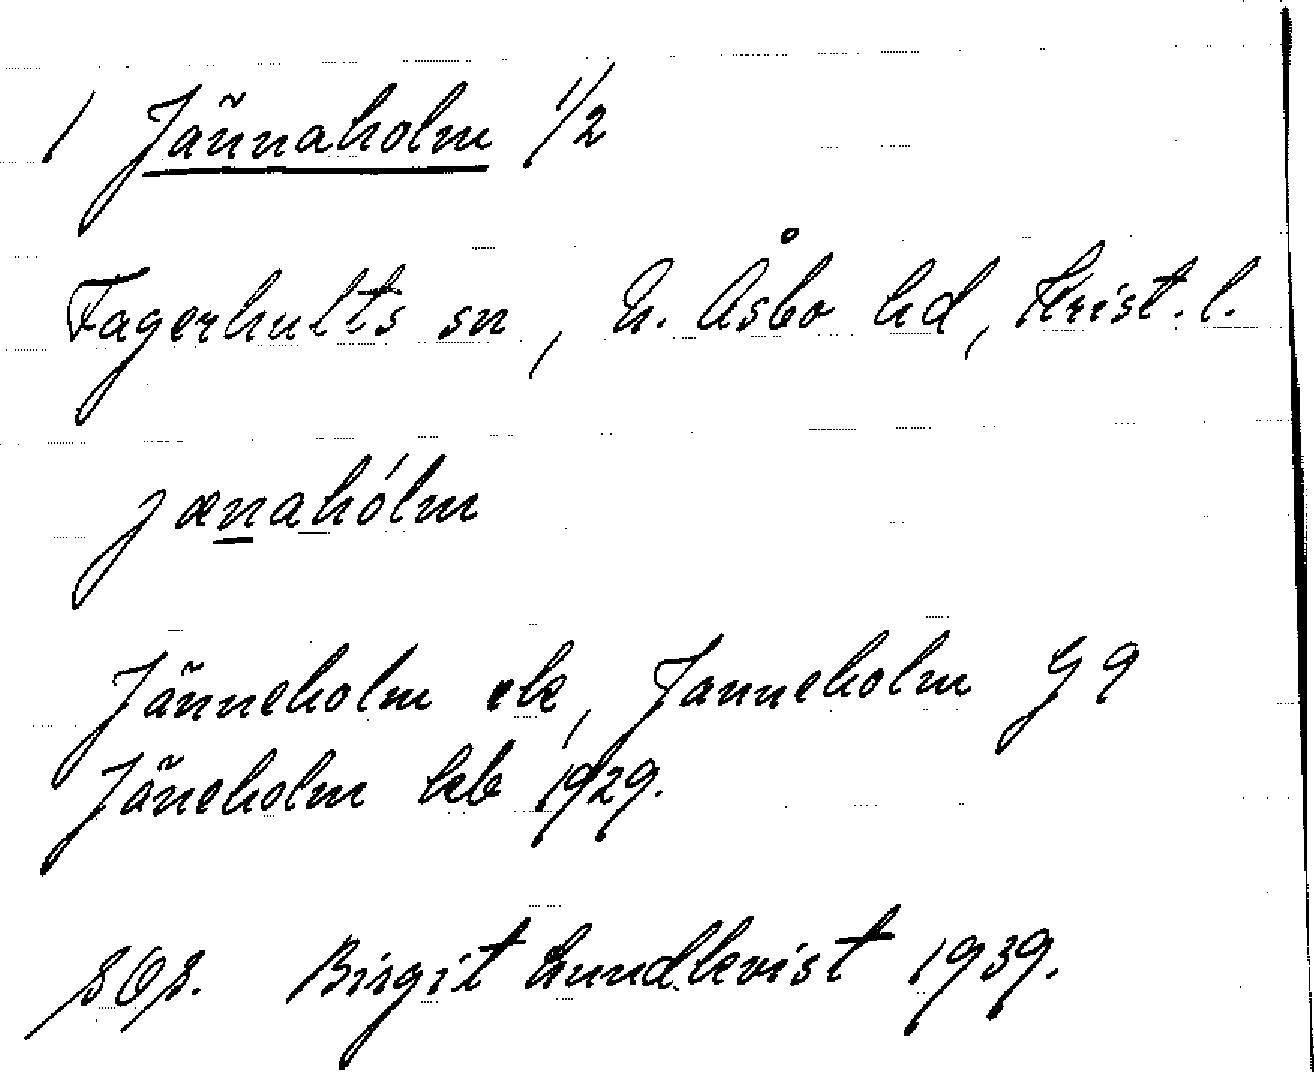 1 Jännaholm 1/2
Fagerhults sn, N. Åsbo hd, Krist. l.
jænahólm
Jänneholm ek, Janneholm G 9
Jäneholm kb 1929.
SOS. Birgit Lundkvist 1939.